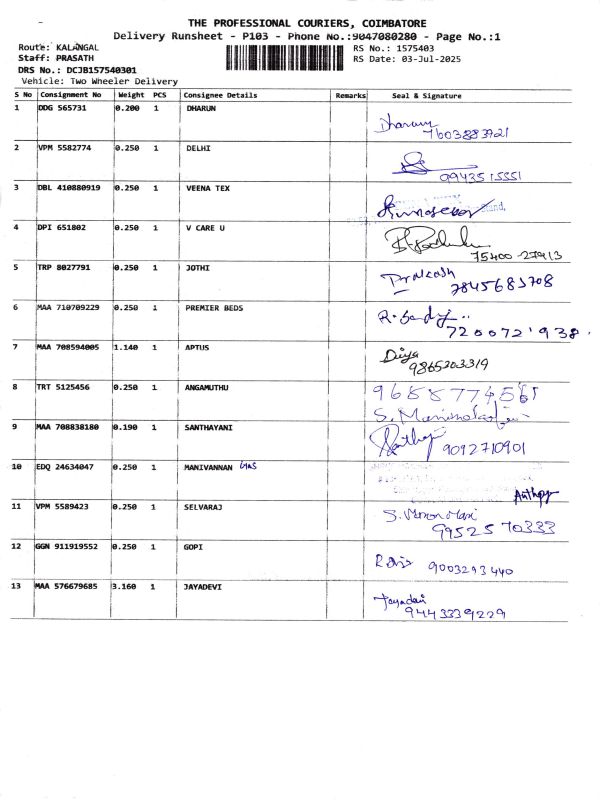 THE PROFESSIONAL COURIERS, COIMBATORE
Delivery Runsheet - P103 - Phone No.:9047080280 - Page No.:1
Route: KALANGAL
RS No.: 1575403
Staff: PRASATH
RS Date: 03-Jul-2025
DRS No.: DCJB157540301
Vehicle: Two Wheeler Delivery
S No Consignment No Weight PCS Consignee Details Remarks Seal & Signature
1 DDG 565731 0.200 1 DHARUN
Dharun
7603883921
2 VPM 5582774 0.250 1 DELHI
9943515551
3 DBL 410880919 0.250 1 VEENA TEX
4 DPI 651802 0.250 1 V CARE U
75400-27913
5 TRP 8027791 0.250 1 JOTHI
Prakash
7845683708
6 MAA 710709229 0.250 1 PREMIER BEDS
720072 938
7 MAA 708594005 1.140 1 APTUS
Divya
9865203319
8 TRT 5125456 0.250 1 ANGAMUTHU
9688774561
9 MAA 708838180 0.190 1 SANTHAYANI
9092710901
10 EDQ 24634047 0.250 1 MANIVANNAN
11 VPM 5589423 0.250 1 SELVARAJ
9952570333
12 GGN 911919552 0.250 1 GOPI
9003293440
13 MAA 576679685 3.160 1 JAYADEVI
Jayadevi
9443339229